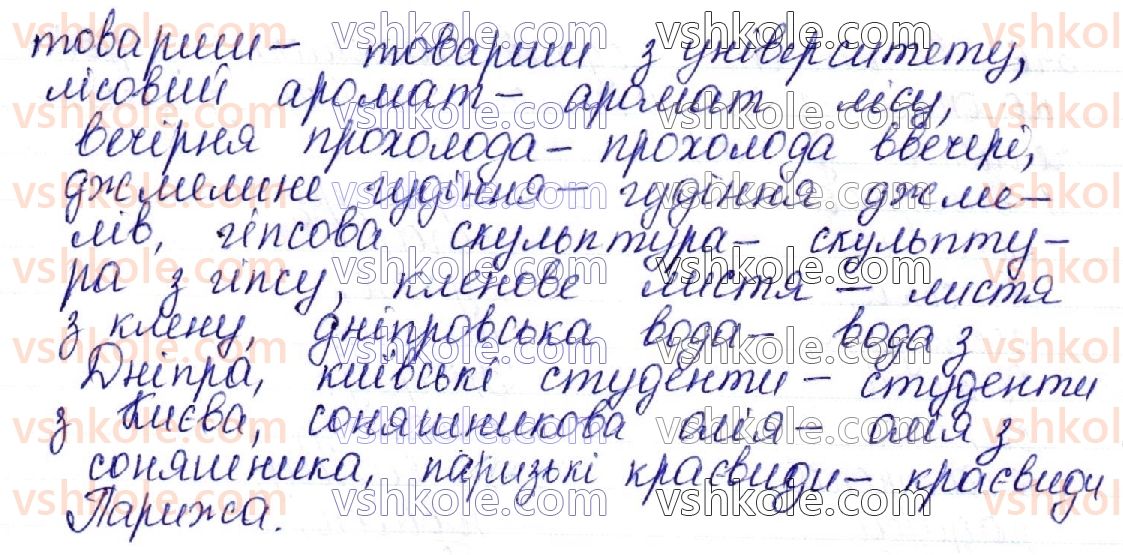 товариши – товариши з університету,
лісовий аромат – аромат лісу,
вечірня прохолода – прохолода ввечері,
джмелине гудіння – гудіння джме-
лів, гіпсова скульптура – скульпту-
ра з гіпсу, кленове листя – листя
з клену, дніпровська вода – вода з
Дніпра, київські студенти – студенти
з Києва, соняшникова олія – олія з
соняшника, паризькі краєвиди – краєвиди
Парижа.